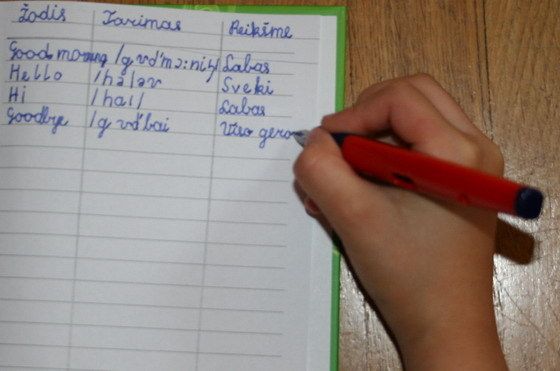 Žodis Tarimas Reikšme
Good morning /gʊd'mɔ:niŋ/ Labas
Hello /hələʊ Sveki
Hi /hai/ Labas
Goodbye /gʊd'bai Viso gero